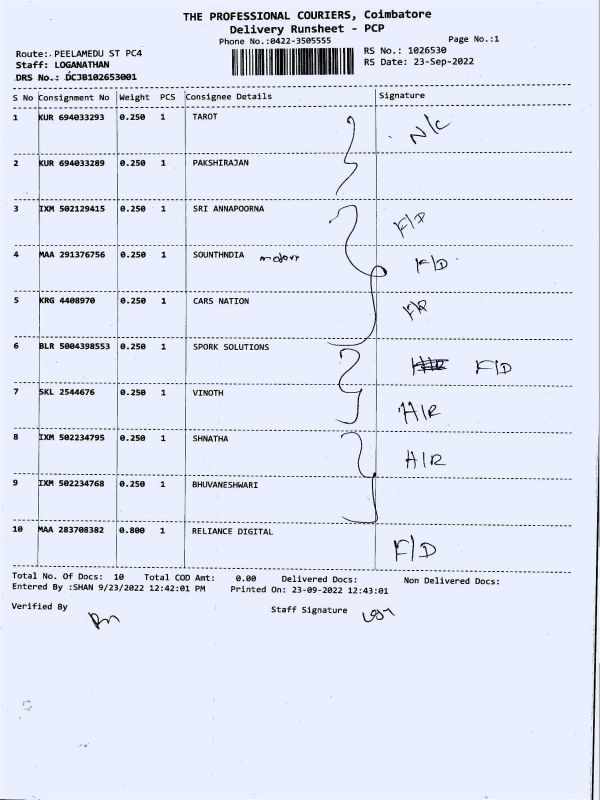 THE PROFESSIONAL COURIERS, Coimbatore
Delivery Runsheet - PCP
Phone No.:0422-3505555
Page No.:1
Route: PEELAMEDU ST PC4
RS No.: 1026530
Staff: LOGANATHAN
RS Date: 23-Sep-2022
DRS No.: DCJB102653001
S No Consignment No Weight PCS Consignee Details Signature
1 KUR 694033293 0.250 1 TAROT N/C
2 KUR 694033289 0.250 1 PAKSHIRAJAN
3 IXM 502129415 0.250 1 SRI ANNAPOORNA F/D
4 MAA 291376756 0.250 1 SOUNTHNDIA F/D
5 KRG 4408970 0.250 1 CARS NATION
6 BLR 5004398553 0.250 1 SPORK SOLUTIONS F/D
7 SKL 2544676 0.250 1 VINOTH H/R
8 IXM 502234795 0.250 1 SHNATHA H/R
9 IXM 502234768 0.250 1 BHUVANESHWARI
10 MAA 283708382 0.800 1 RELIANCE DIGITAL F/D
Total No. Of Docs: 10 Total COD Amt: 0.00 Delivered Docs: Non Delivered Docs:
Entered By :SHAN 9/23/2022 12:42:01 PM Printed On: 23-09-2022 12:43:01
Verified By Staff Signature